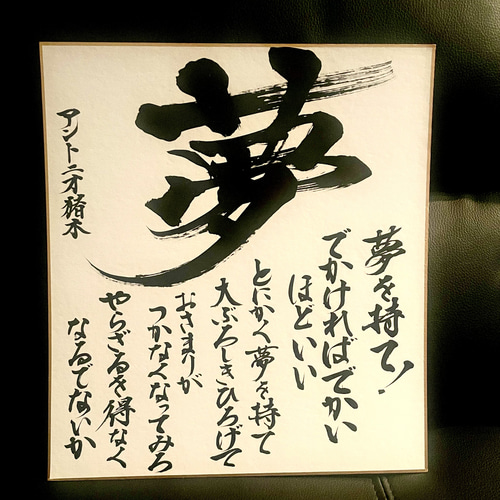 夢
夢を持て!
でかければでかい
ほどいい
とにかく夢を持て
大ぶろしきひろげて
おさまりが
つかなくなってみろ
やらざるを得なく
なるでないか
アントニオ猪木